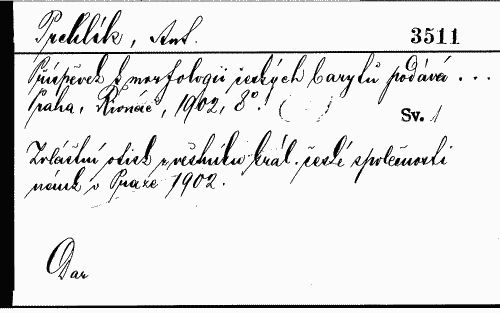 Prchlík, Ant.
3511
Příspěvek k morfologii českých barytů podává ...
Praha, Rivnáč, 1902, 8°.
Sv. 1
Zvláštní otisk z věstníku král. české společnosti
náuk v Praze 1902.
Dar